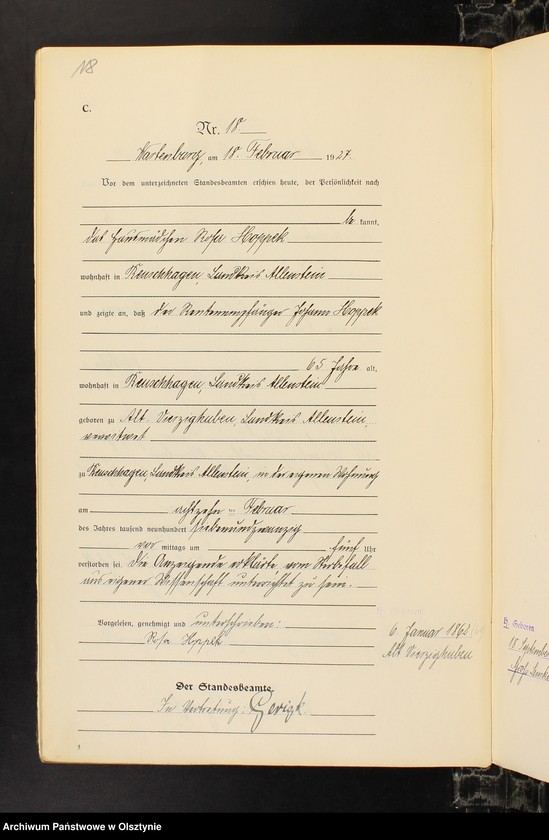 118
C.
Nr. 18.
Wartenburg, am 18. Februar 1927.
Vor dem unterzeichneten Standesbeamten erschien heute, der Persönlichkeit nach
be kannt,
das Hausmädchen Rosa Hoppek
wohnhaft in Reuschhagen, Landkreis Allenstein
und zeigte an, daß der Rentenempfänger Johann Hoppek
65 Jahre alt,
wohnhaft in Reuschhagen, Landkreis Allenstein
geboren zu Alt Vierzighuben, Landkreis Allenstein,
verwitwet
zu Reuschhagen, Landkreis Allenstein, in der eigenen Wohnung
am achtzehn ten Februar
des Jahres tausend neunhundert siebenundzwanzig
vor mittags um fünf Uhr
verstorben sei. Die Anzeigende erklärte, vom Sterbefall
aus eigener Wissenschaft unterrichtet zu sein.
Vorgelesen, genehmigt und unterschrieben:
Rosa Hoppek
6. Januar 1862
Alt Vierzighuben
Der Standesbeamte.
In Vertretung: Gerigk
H. Geboren
18 September
Archiwum Państwowe w Olsztynie